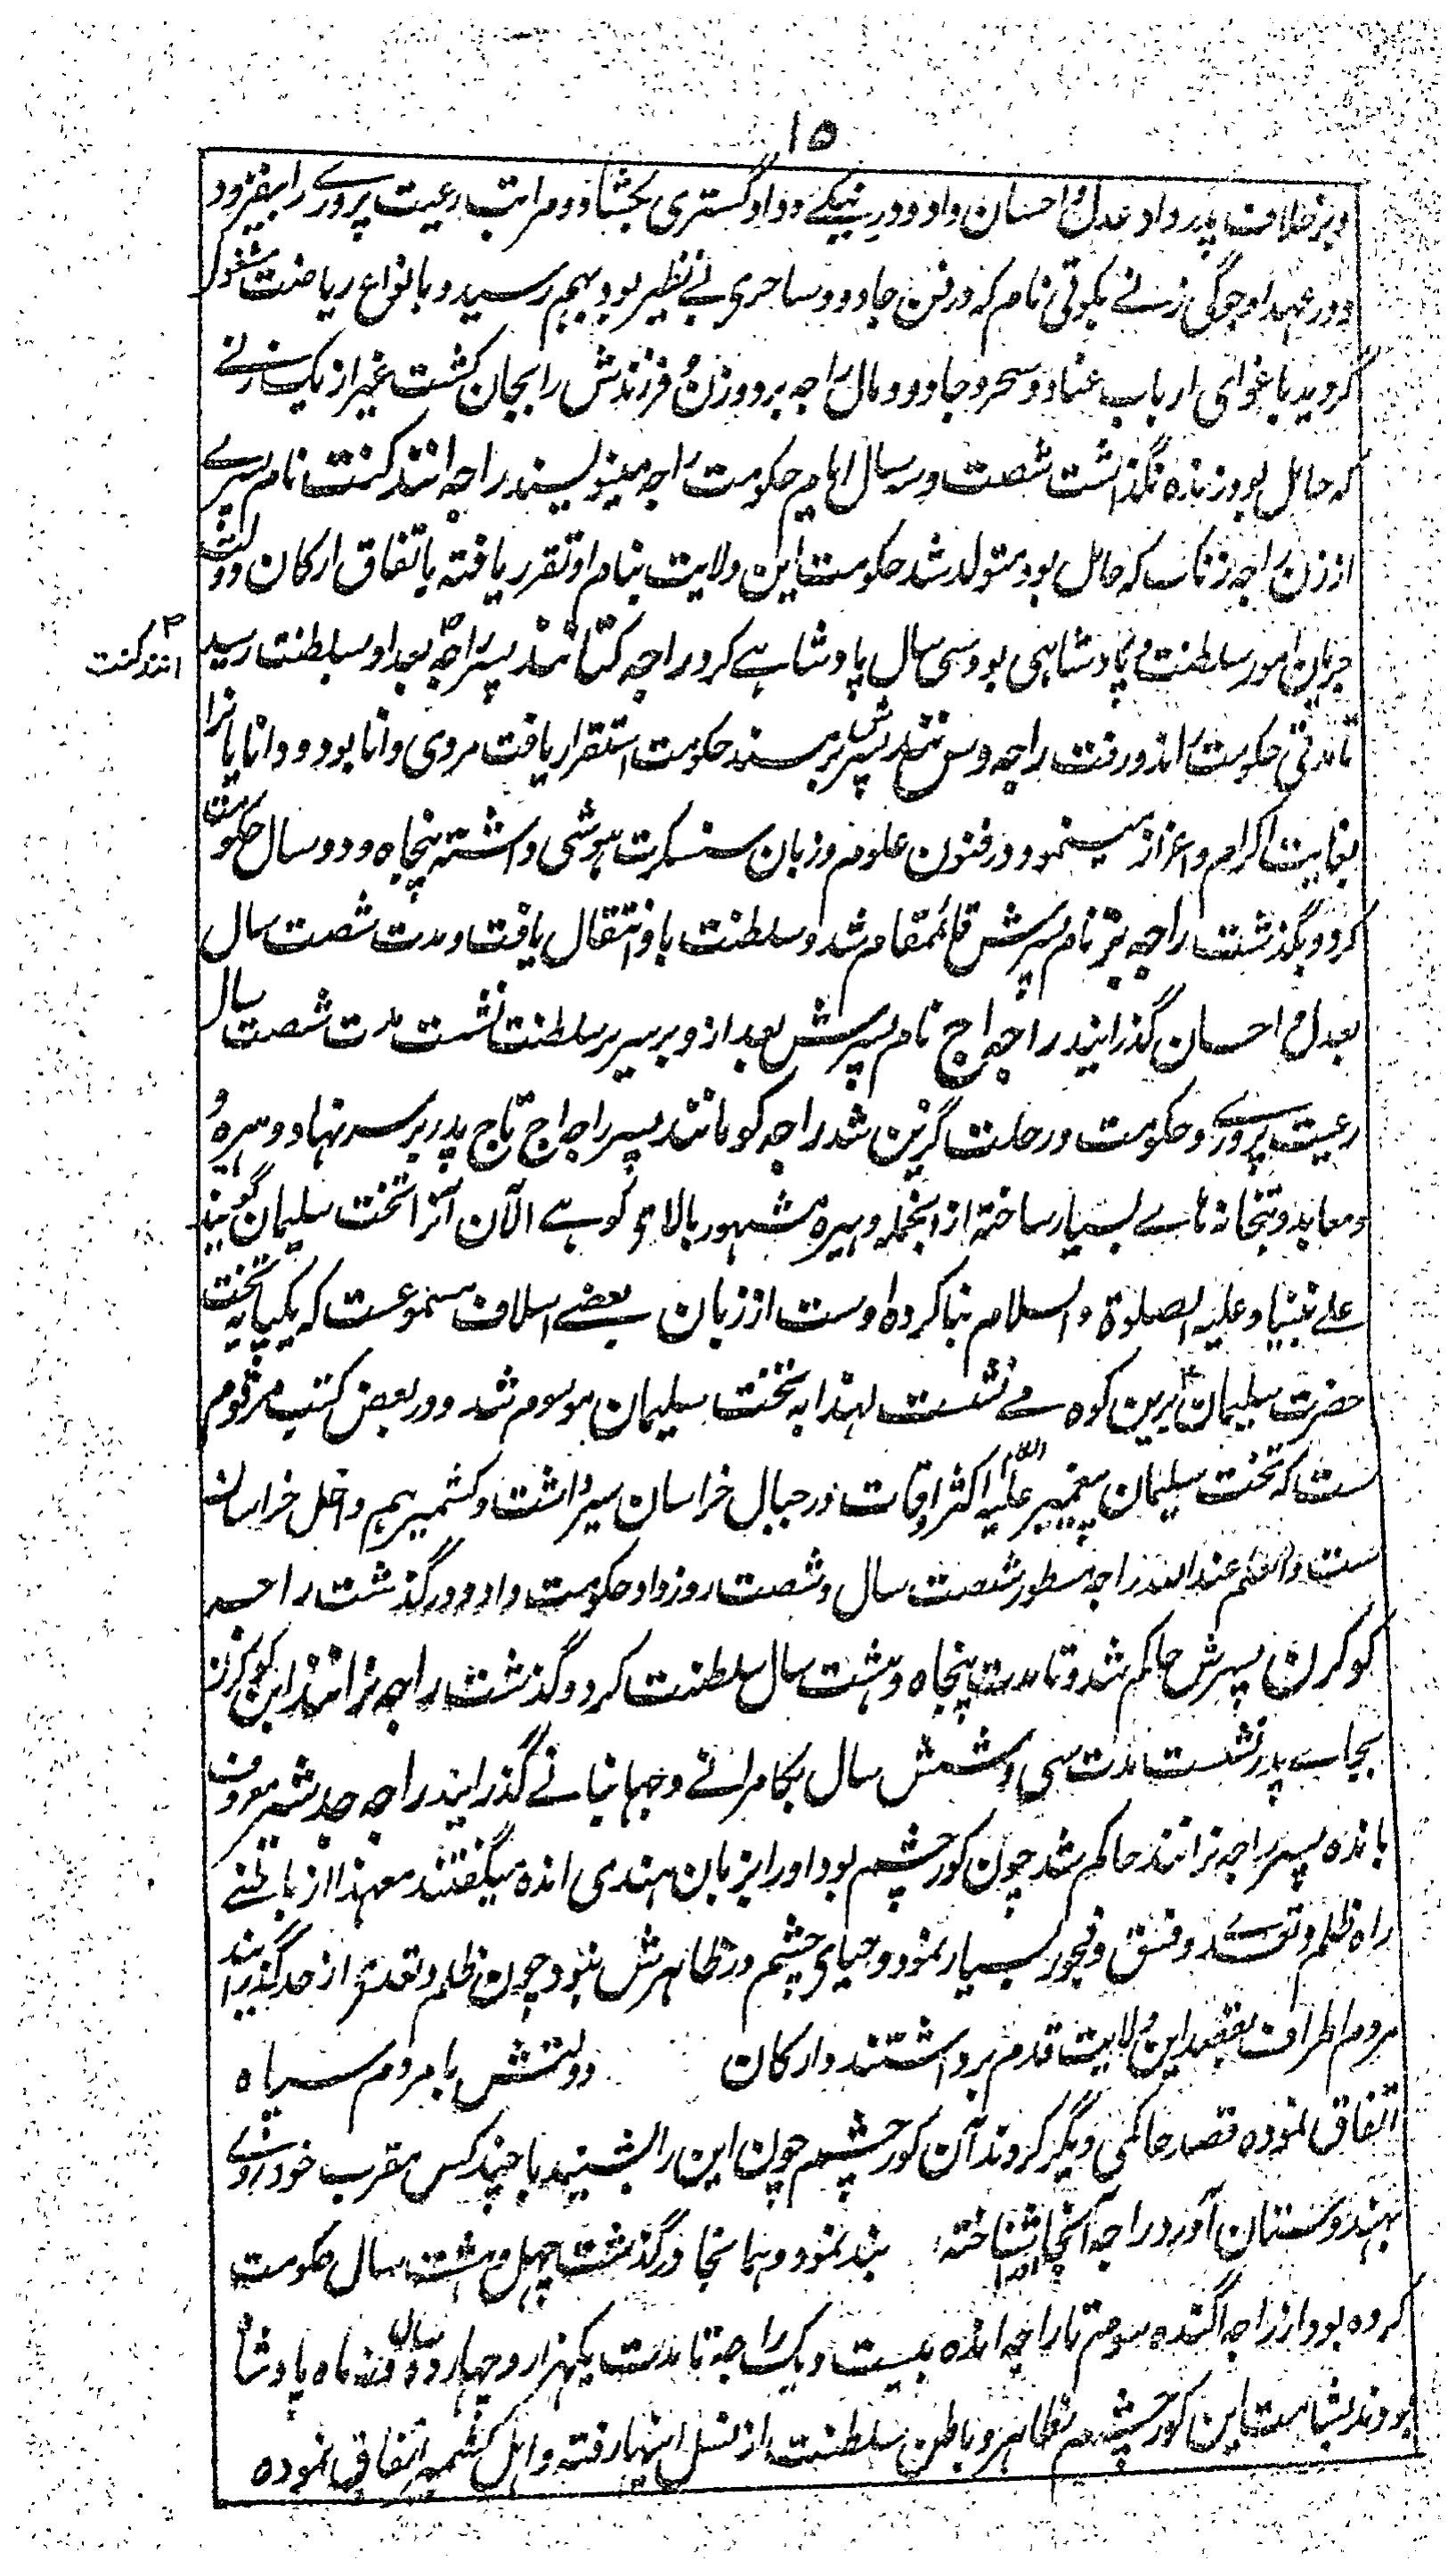 ۱۵
و بر خلاف پدر داد عدل و احسان داد و در نیکے و دادگستری بگشاد و مراتب رعیت پروری را بیفزود
و در عهد او جوگی زنے بکوتی نام که در فن جادو و ساحری بے نظیر بود بهم رسید و بانواع ریاضت مشغول
گردید باغوای ارباب عناد و سحر و جادو و مال راجه برد و زن و فرزندش را بجان کشت غیر از یک زنے
که حامل بود زنده نگذاشت شصت و سه سال ایام حکومت راجه مینویسند راجه انندکنت نام پسرے
از زن راجه که حامل بود متولد شد حکومت این ولایت بنام او تقرر یافته باتفاق ارکان دولت
جریان امور سلطنت و پادشاهی بود سی سال پادشاہے کرد راجه کتانند پسر راجه بعد او بسلطنت رسید
انندکنت
تا مدتی حکومت راند و رفت راجه وسونند پسرش بر مسند حکومت استقرار یافت مردی دانا بود و دانایان را
بغایت اکرام و اعزاز مینمود و در فنون علوم و زبان سنسکرت هوشی داشته پنجاه و دو سال حکومت
کرد و بگذشت راجه نر نام پسرش قائمقام شد و سلطنت باو انتقال یافت و مدت شصت سال
بعدل و احسان گذرانید راجه اج نام پسرش بعد ازو بر سریر سلطنت نشست مدت شصت سال
رعیت پرورے و حکومت و رحلت گزین شد راجه کوپانند پسر راجه اج تاج پدر بر سر نهاد و هیرهٔ
و معابد و بتخانه هاے بسیار ساخته از انجمله و هیره مشهور بالاے کوہے الآن آنرا تخت سلیمان گویند
علے نبینا و علیه الصلوة و السلام بنا کرده اوست از زبان بعضے اسلاف مسموعست که یکپایه تخت
حضرت سلیمان برین کوه مے نشست لهذا به تخت سلیمان موسوم شد و در بعض کتب مرقوم
ست که تخت سلیمان پیغمبر علیه السلام اکثر اوقات در جبال خراسان سیر داشت و کشمیر هم داخل خراسان
ست والعلم عند الله راجه مسطور شصت سال و شصت روز داد حکومت داد و درگذشت راجه
کوکرن پسرش حاکم شد و تا مدت پنجاه و هشت سال سلطنت کرد و گذشت راجه نرانند ابن کوکرن
بجاے پدر نشست مدت سی و شش سال بکامرانے و جهانبانے گذرانید راجه جدشتر معروف
بانده پسر راجه نرانند حاکم شد چون کور چشم بود او را بزبان هندی انده میگفتند معهذا از باطنے
راه ظلم و تعدے و فسق و فجور بسیار نمود و حیای چشم در ظاهرش نبود چون ظلم و تعدی از حد گذرانید
مردم اطراف بقصد این ولایت قدم برداشتند و ارکان دولتش با مردم سپاه
اتفاق نموده قصد حاکمی دیگر کردند آن کور چشم چون این را بشنید با چند کس مقرب خود روے
بهندوستان آورد راجه آنجا شناخته بند نمود و همانجا درگذشت چهل و هشت سال حکومت
کرده بود از راجه اگننده سومتم تا راجه انده بیست و یک راجه تا مدت یکهزار و چهارده سال و نه ماه پادشاه
بودند بشامت این کور چشم ظاهر و باطن سلطنت از نسل اینها رفته و اهل کشمیر اتفاق نموده